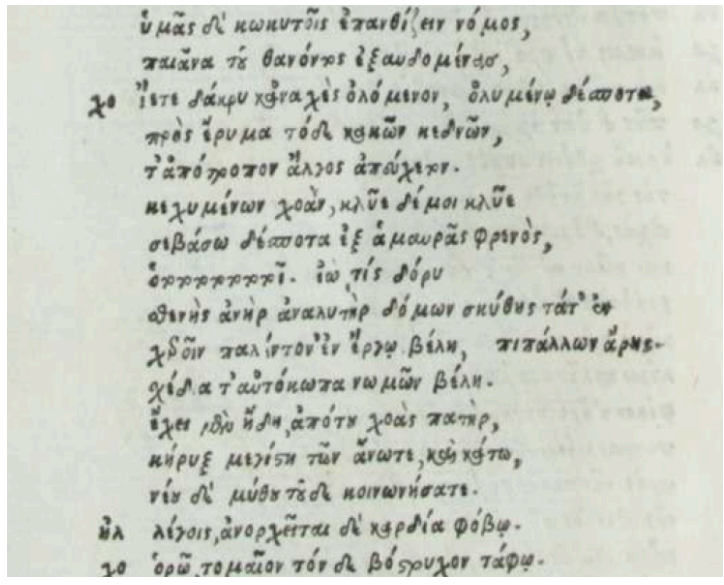 ὑμᾶς δὲ κωκυτοῖς ἐπανθίζειν νόμος,
παιᾶνα τοῦ θανόντος ἐξαυδωμένας,
χο ἵετε δάκρυ καναχὲς ὀλόμενον, ὀλυμένῳ δέσποτα,
πρὸς ἔρυμα τόδε κακῶν κεδνῶν,
τ' ἀπότροπον ἄλγος ἀπεύχετον.
κεχυμένων χοὰν, κλῦε δέ μοι κλῦε
σεβάσω δέσποτα ἐξ ἀμαυρᾶς φρενὸς,
ὀτοτοτοτοτοτοῖ. ἰὼ τίς δόρυ
σθενὴς ἀνὴρ ἀναλυτὴρ δόμων σκύθης τάτ' ἐν
χεροῖν παλίντον' ἐν ἔργῳ βέλη, πιπάλλων ἄρης.
σχέδια τ' αὐτόκωπα νωμῶν βέλη.
ἔχει μὲν ἤδη, ἀπότου χοὰς πατὴρ,
κήρυξ μεγίστη τῶν ἄνωτε, καὶ κάτω,
νέου δὲ μύθου τοῦδε κοινωνήσατε.
ἠλ λέγοις, ἀνορχεῖται δὲ καρδία φόβῳ.
χο ὁρῶ τομαῖον τόνδε βόστρυχον τάφῳ.